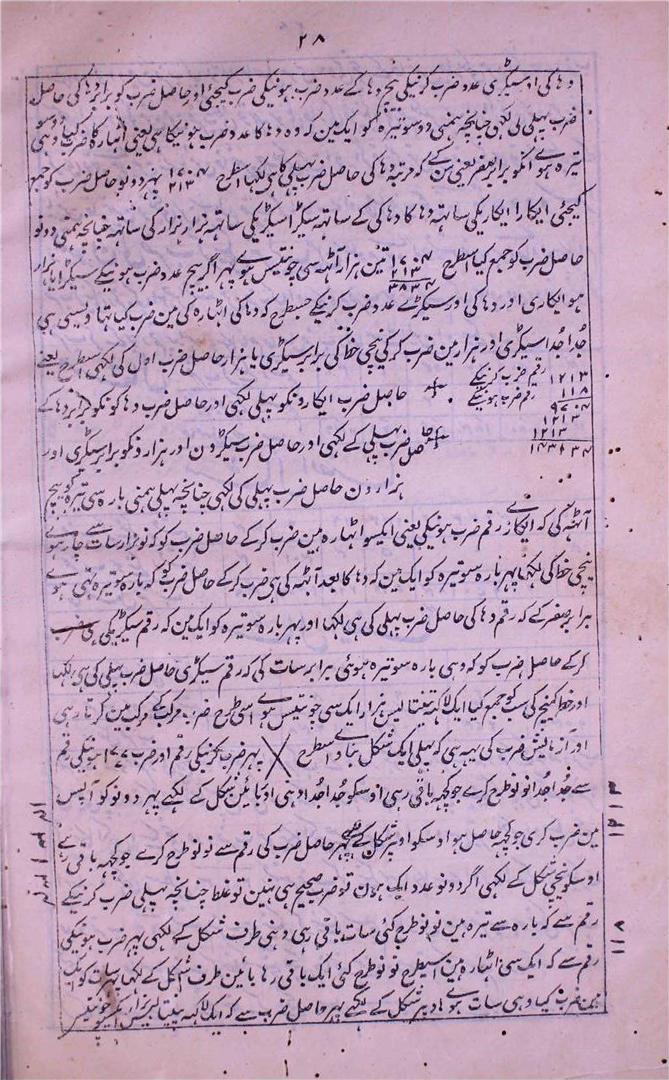 ٢٨
دہاکی اور سیکڑی عدد ضرب کرنیکی نیچی دہا کے عدد ضرب ہونیکی ضرب کیجئی اور حاصل ضرب کو برابر دہا کی حاصل
ضرب پہلی کی لکہی چنانچہ ہمنی دو سو تیرہ کو ایک مین کہ وہ دہا کا عدد ضرب ہونیکا ہی یعنی اٹہارہ کا ضرب کیا دو سو
تیرہ ہوے انکو برابر صفر یعنی کے کہ مرتبہ دہا کی حاصل ضرب پہلی کا ہی لکہا اسطرح ١٧٠٤ ٢١٣ پہر دونو حاصل ضرب کو جمع
کیجئی ایکا را ایکا ریکی ساتہہ دہا کا دہا کی کے ساتہہ سیکڑا سیکڑیکی ساتہہ ہزار ہزار کی ساتہہ چنانچہ ہمنی دونو
حاصل ضرب کو جمع کیا اسطرح ١٧٠٤ ٢١٣ ٣٨٣٤ تین ہزار آٹہہ سی چونتیس ہوے پہر اگر بیچ عدد ضرب ہونیکے سیکڑا یا ہزار
ہو ایکاری اور دہا کی اور سیکڑے عدد ضرب کرنیکے جسطرح کہ دہا کی اٹہارہ کی مین ضرب کیا تہا ویسی ہی
جُدا جُدا سیکڑی اور ہزار مین ضرب کرکی نیچی خط کی برابر سیکڑی یا ہزار حاصل ضرب اول کی لکہی اسطرح یعنے
١٢١٣ رقم ضرب کرنیکے
١١٨ رقم ضرب ہونیکے
٩٧٠٤
١٢١٣
١٢١٣
١٤٣١٣٤
حاصل ضرب ایکارونکو پہلی لکہی اور حاصل ضرب دہاکونکو برابر دہاکے
حاصل ضرب پہلی کے لکہی اور حاصل ضرب سیکڑون اور ہزار ذکو برابر سیکڑی اور
ہزارون حاصل ضرب پہلی کی لکہی چنانچہ پہلی ہمنی بارہ سی تیرہ کو بیچ
آٹہہ کی کہ ایکا رقم ضرب ہونیکی یعنی ایکسو اٹہارہ مین ضرب کرکے حاصل ضرب کو کہ نو ہزار سات سے چار ہوے
نیچی خط کی لکہا پہر بارہ سو تیرہ کو ایک مین کہ دہا کا بعد آٹہہ کی ہی ضرب کرکے حاصل ضرب کو کہ بارہ سو تیرہ ہی ہوے
برابر صفر کے کہ رقم دہا کی حاصل ضرب پہلی کی ہی لکہا اور پہر بارہ سو تیرہ کو ایک مین کہ رقم سیکڑیکی ہے ضرب
کرکے حاصل ضرب کو کہ وہی بارہ سو تیرہ ہوئی برابر سات کی کہ رقم سیکڑی حاصل ضرب پہلی کی ہی لکہا
اور خط کہینچ کی سب کو جمع کیا ایک لاکہہ تینتالیس ہزار ایک سی چونتیس ہوے اسی طرح ضرب مرکب کی مرکب مین کرتا رہی
اور آزمایش ضرب کی یہہ ہی کہ پہلی ایک شکل بناوے اسطرح پہر ضرب کرنیکی رقم اور ضرب ١٧٠ ہونیکی رقم
سے جُدا جُدا نو نو طرح کرے جو کچہہ باقی رہی اوسکو جُدا جُدا دہنی او بائین شکل کے لکہے پہر دونو کو آپس
مین ضرب کری جو کچہہ حاصل ہو اوسکو اوپر شکل کے لکہے پہر حاصل ضرب کی رقم سے نو نو طرح کرے جو کچہہ باقی رہے
اوسکو نیچی شکل کے لکہی اگر دونو عدد ایک ہون تو ضرب صحیح ہی نہین تو غلط چنانچہ پہلی ضرب کرنیکے
رقم سے کہ بارہ سے تیرہ ہین نو نو طرح کئی سات باقی رہی دہنی طرف شکل کے لکہی پہر ضرب ہونیکی
رقم سے کہ ایک سی اٹہارہ ہین اسیطرح نو نو طرح کئی ایک باقی رہا بائین طرف شکل کے لکہا پہر سات کو ایک
مین ضرب کیا وہی سات ہوے اوپر شکل کے لکہے پہر حاصل ضرب سے کہ ایک لاکہہ تینتالیس ہزار ایکسو چونتیس
١٢١٣
١١٨